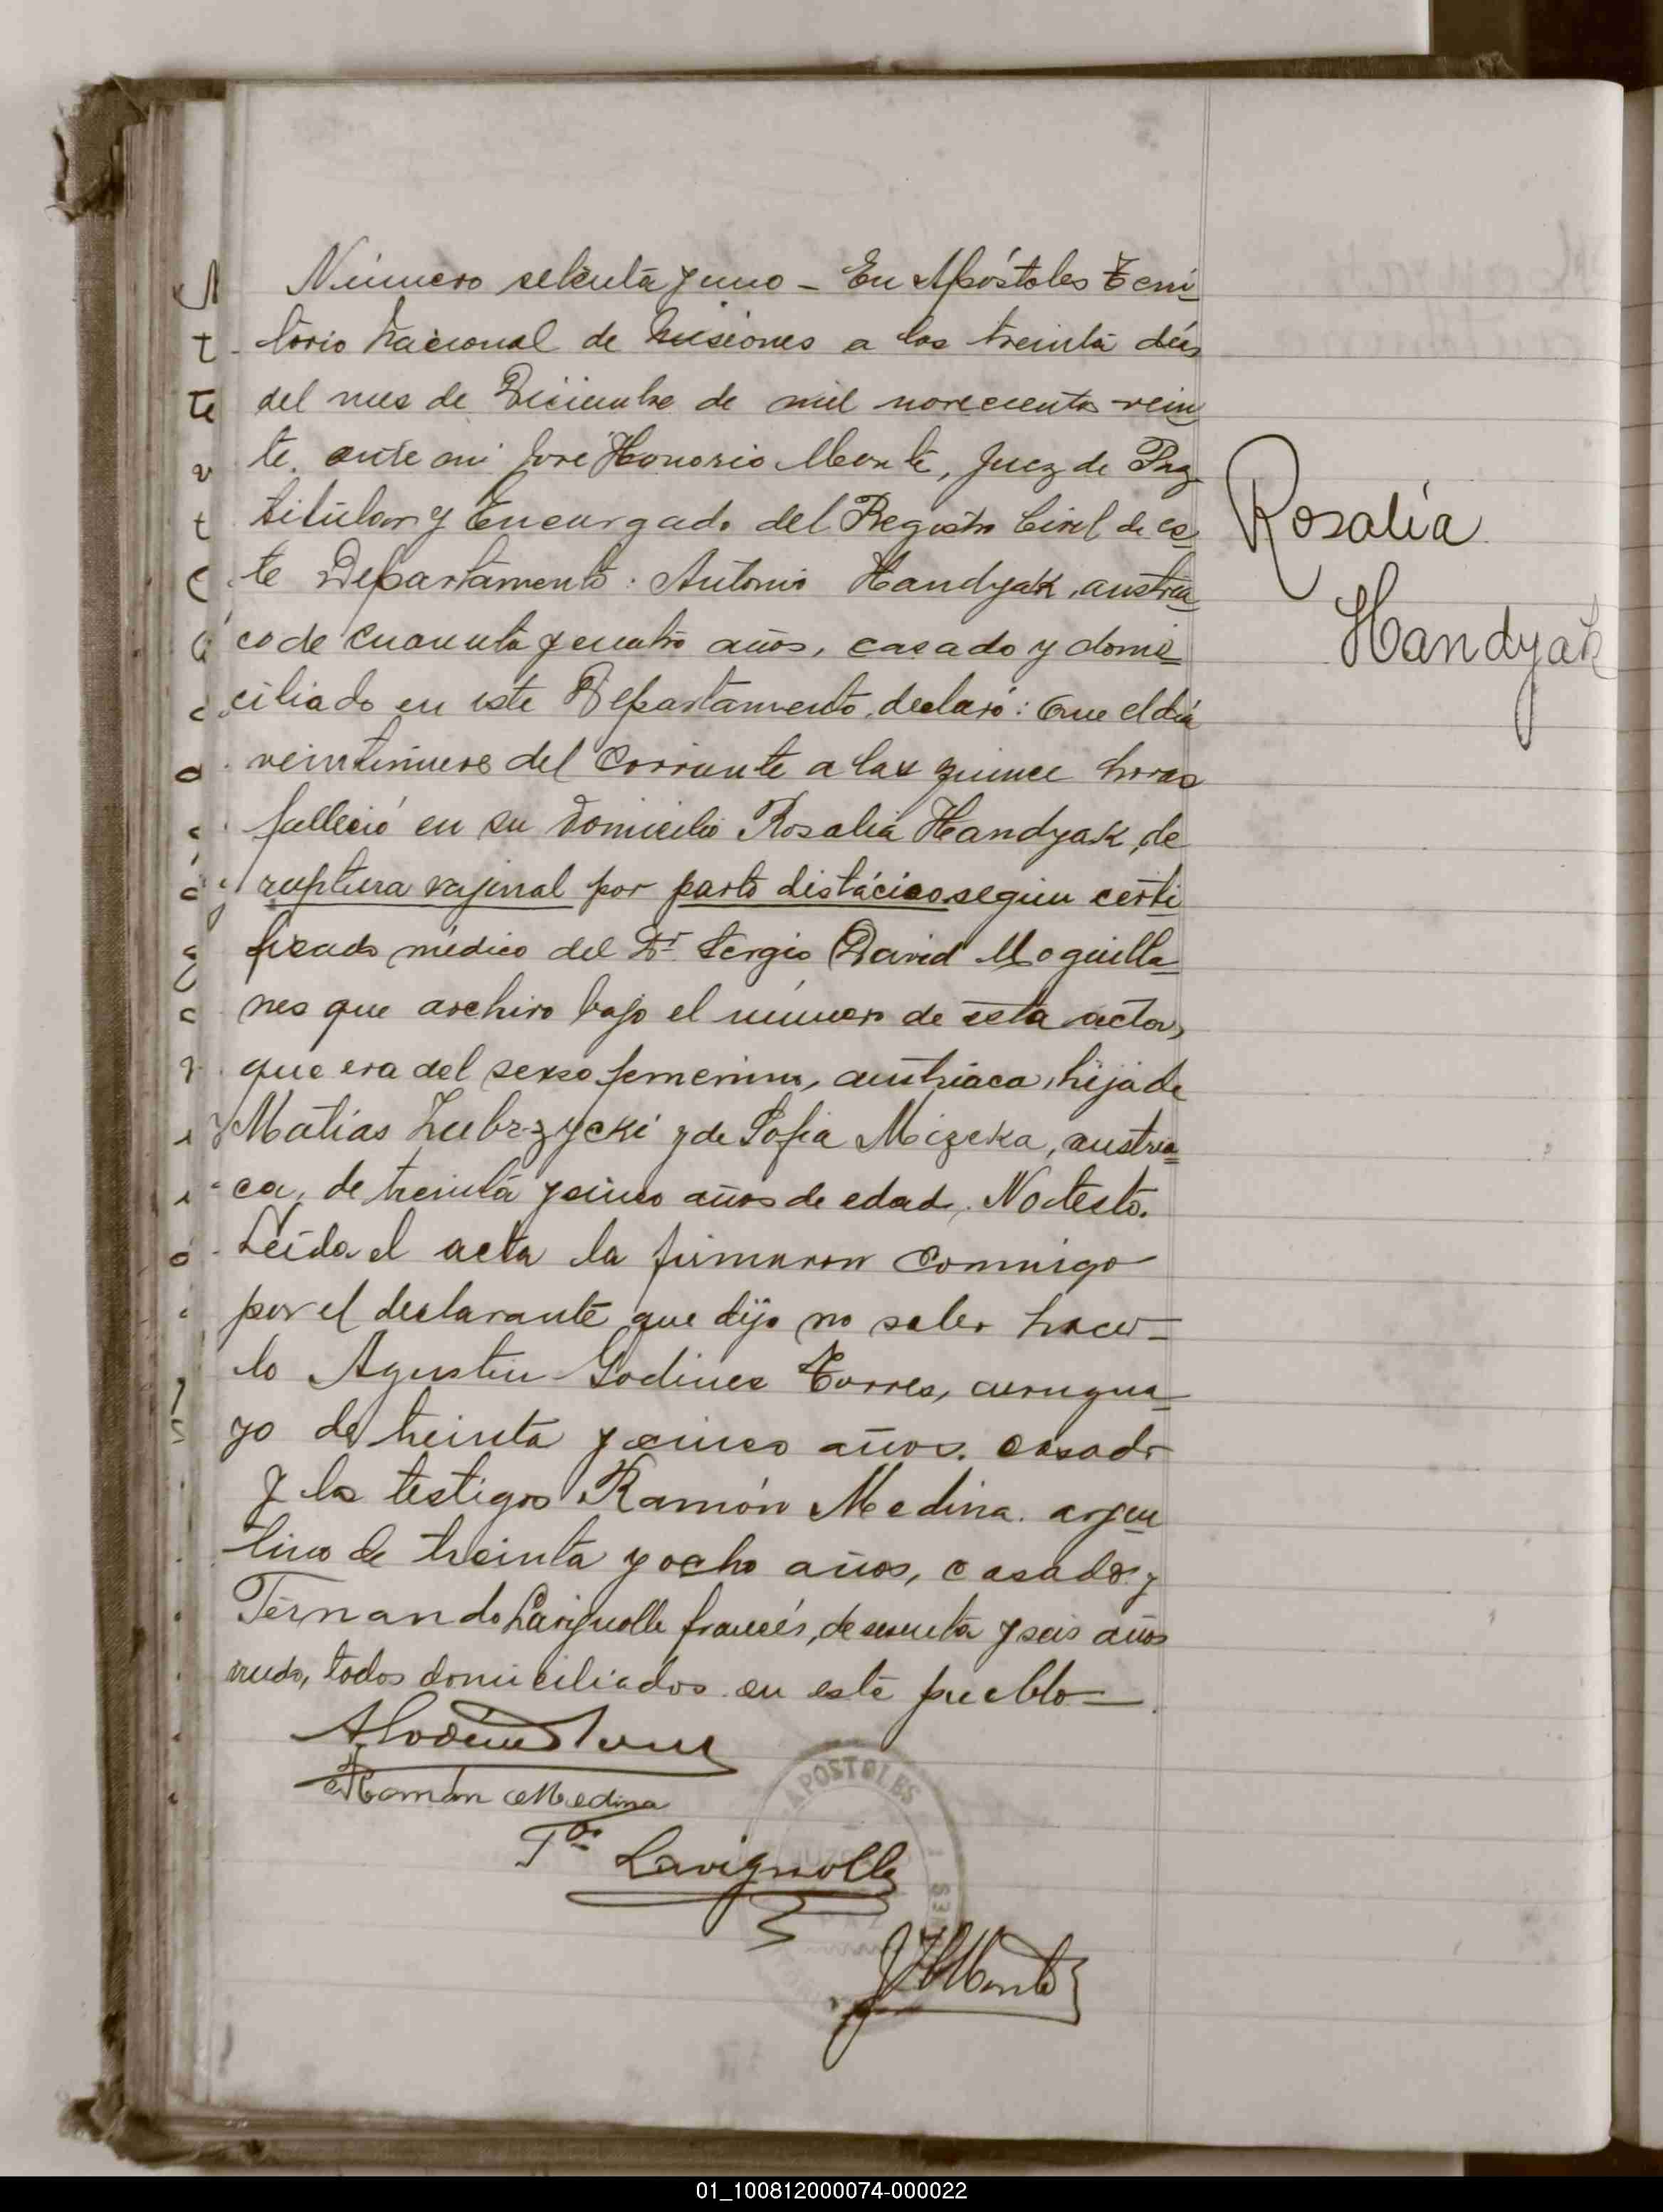 Número setenta y uno - En Apóstoles Terri
torio Nacional de Misiones a los treinta días
del mes de Diciembre de mil novecientos vein
te, ante mi José Honorio Monte, Juez de Paz
titular y Encargado del Registro Civil de es
te Departamento: Antonio Handyak, austria
co de cuarenta y cuatro años, casado y domi
ciliado en este Departamento, declaró: Que el día
veintinueve del corriente a las quince horas
falleció en su domicilio Rosalia Handyak, de
ruptura vajinal por parto distácico según certi
ficado médico del Dr. Sergio David Moguilla
nes que archivo bajo el número de esta acta,
que era del sexso femenino, austriaca, hija de
Matías Zubrzycki y de Sofia Mizeka, austria
ca, de treinta y cinco años de edad. No testó.
Leída el acta la firmaron conmigo
por el declarante que dijo no saber hacer-
lo Agustin Godines Torres, urugua
yo de treinta y cinco años, casado
y los testigos Ramón Medina, argen
tino de treinta y ocho años, casado y
Fernando Lavignolle francés, de sesenta y seis años
viudo, todos domiciliados en este pueblo—
Rosalía
Handyak
AGodines Torres
Ramón Medina
Fdo Lavignolle
JHMonte
APOSTOLES
01_100812000074-000022